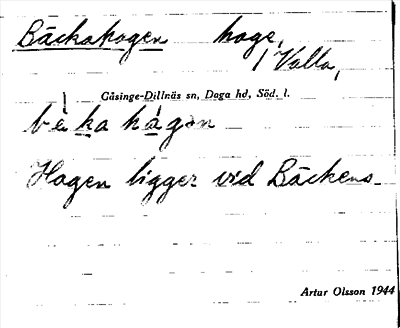 Bäckahagen hage,
/ Valla,
Gåsinge-Dillnäs sn, Daga hd, Söd. l.
bèkahágən
Hagen ligger vid Bäckens-
Artur Olsson 1944